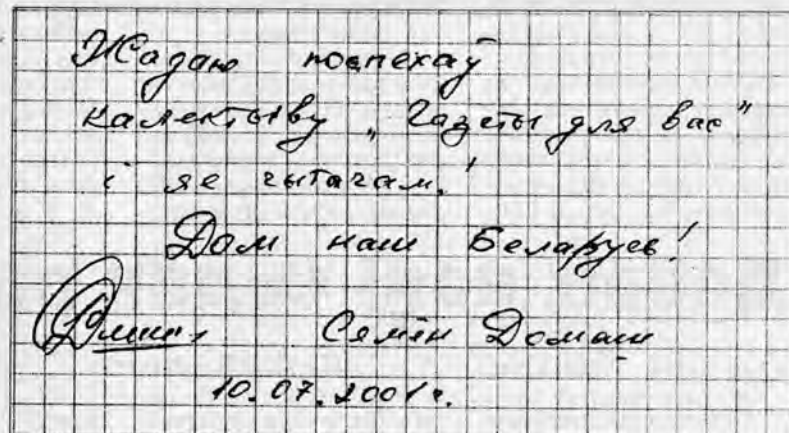 Жадаю поспехаў
калектыву „Газеты для вас"
і яе чытачам!
Дом наш Беларусь!
Сямён Домаш
10.07.2001 г.